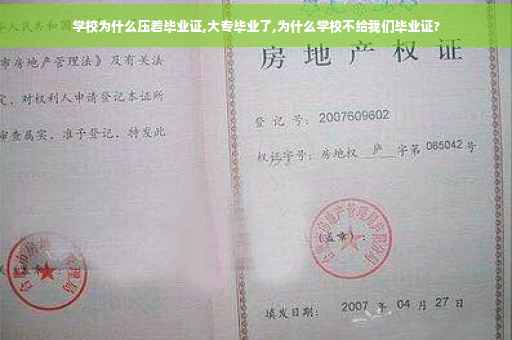 学校为什么压着毕业证,大专毕业了,为什么学校不给我们毕业证?
人民共和国
市房地产管理法》及有关法
定，对权利人申请登记本证所
审查属实，准予登记，特发此
房地产权证
登记号：2007609602
权证字号：房地权 庐 字第 065042 号
(盖章)：
填发日期：2007 年 04 月 27 日